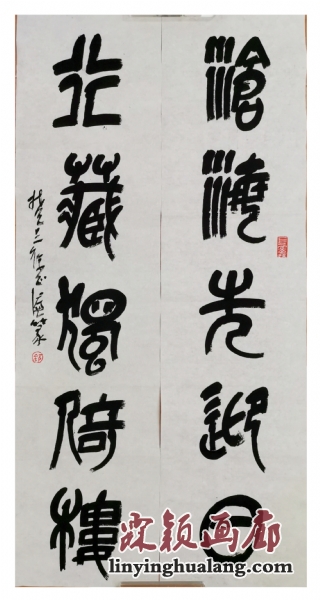 滄海先迎日
行藏獨倚樓
霖颖画廊
linyinghualang.com